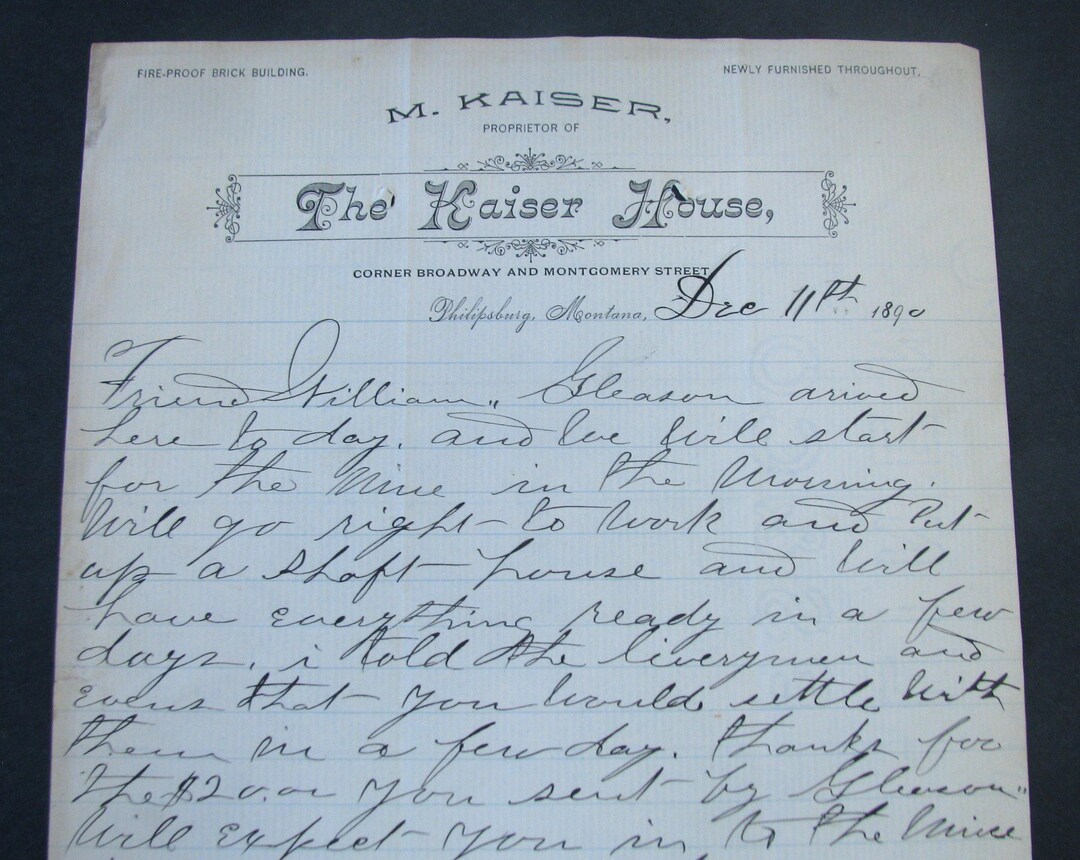 FIRE-PROOF BRICK BUILDING.
NEWLY FURNISHED THROUGHOUT.
M. KAISER,
PROPRIETOR OF
The Kaiser House,
CORNER BROADWAY AND MONTGOMERY STREET
Philipsburg, Montana, Dec 11th 1890
Friend William,, Gleason arived
here to day. and we will start
for the Mine in the Morning.
Will go right to work and Put
up a Shaft house and will
have everything ready in a few
days. i told the liverymen and
that you would settle with
them in a few day. thanks for
the $20.00 you sent by Gleason"
Will expect you in to the Mine